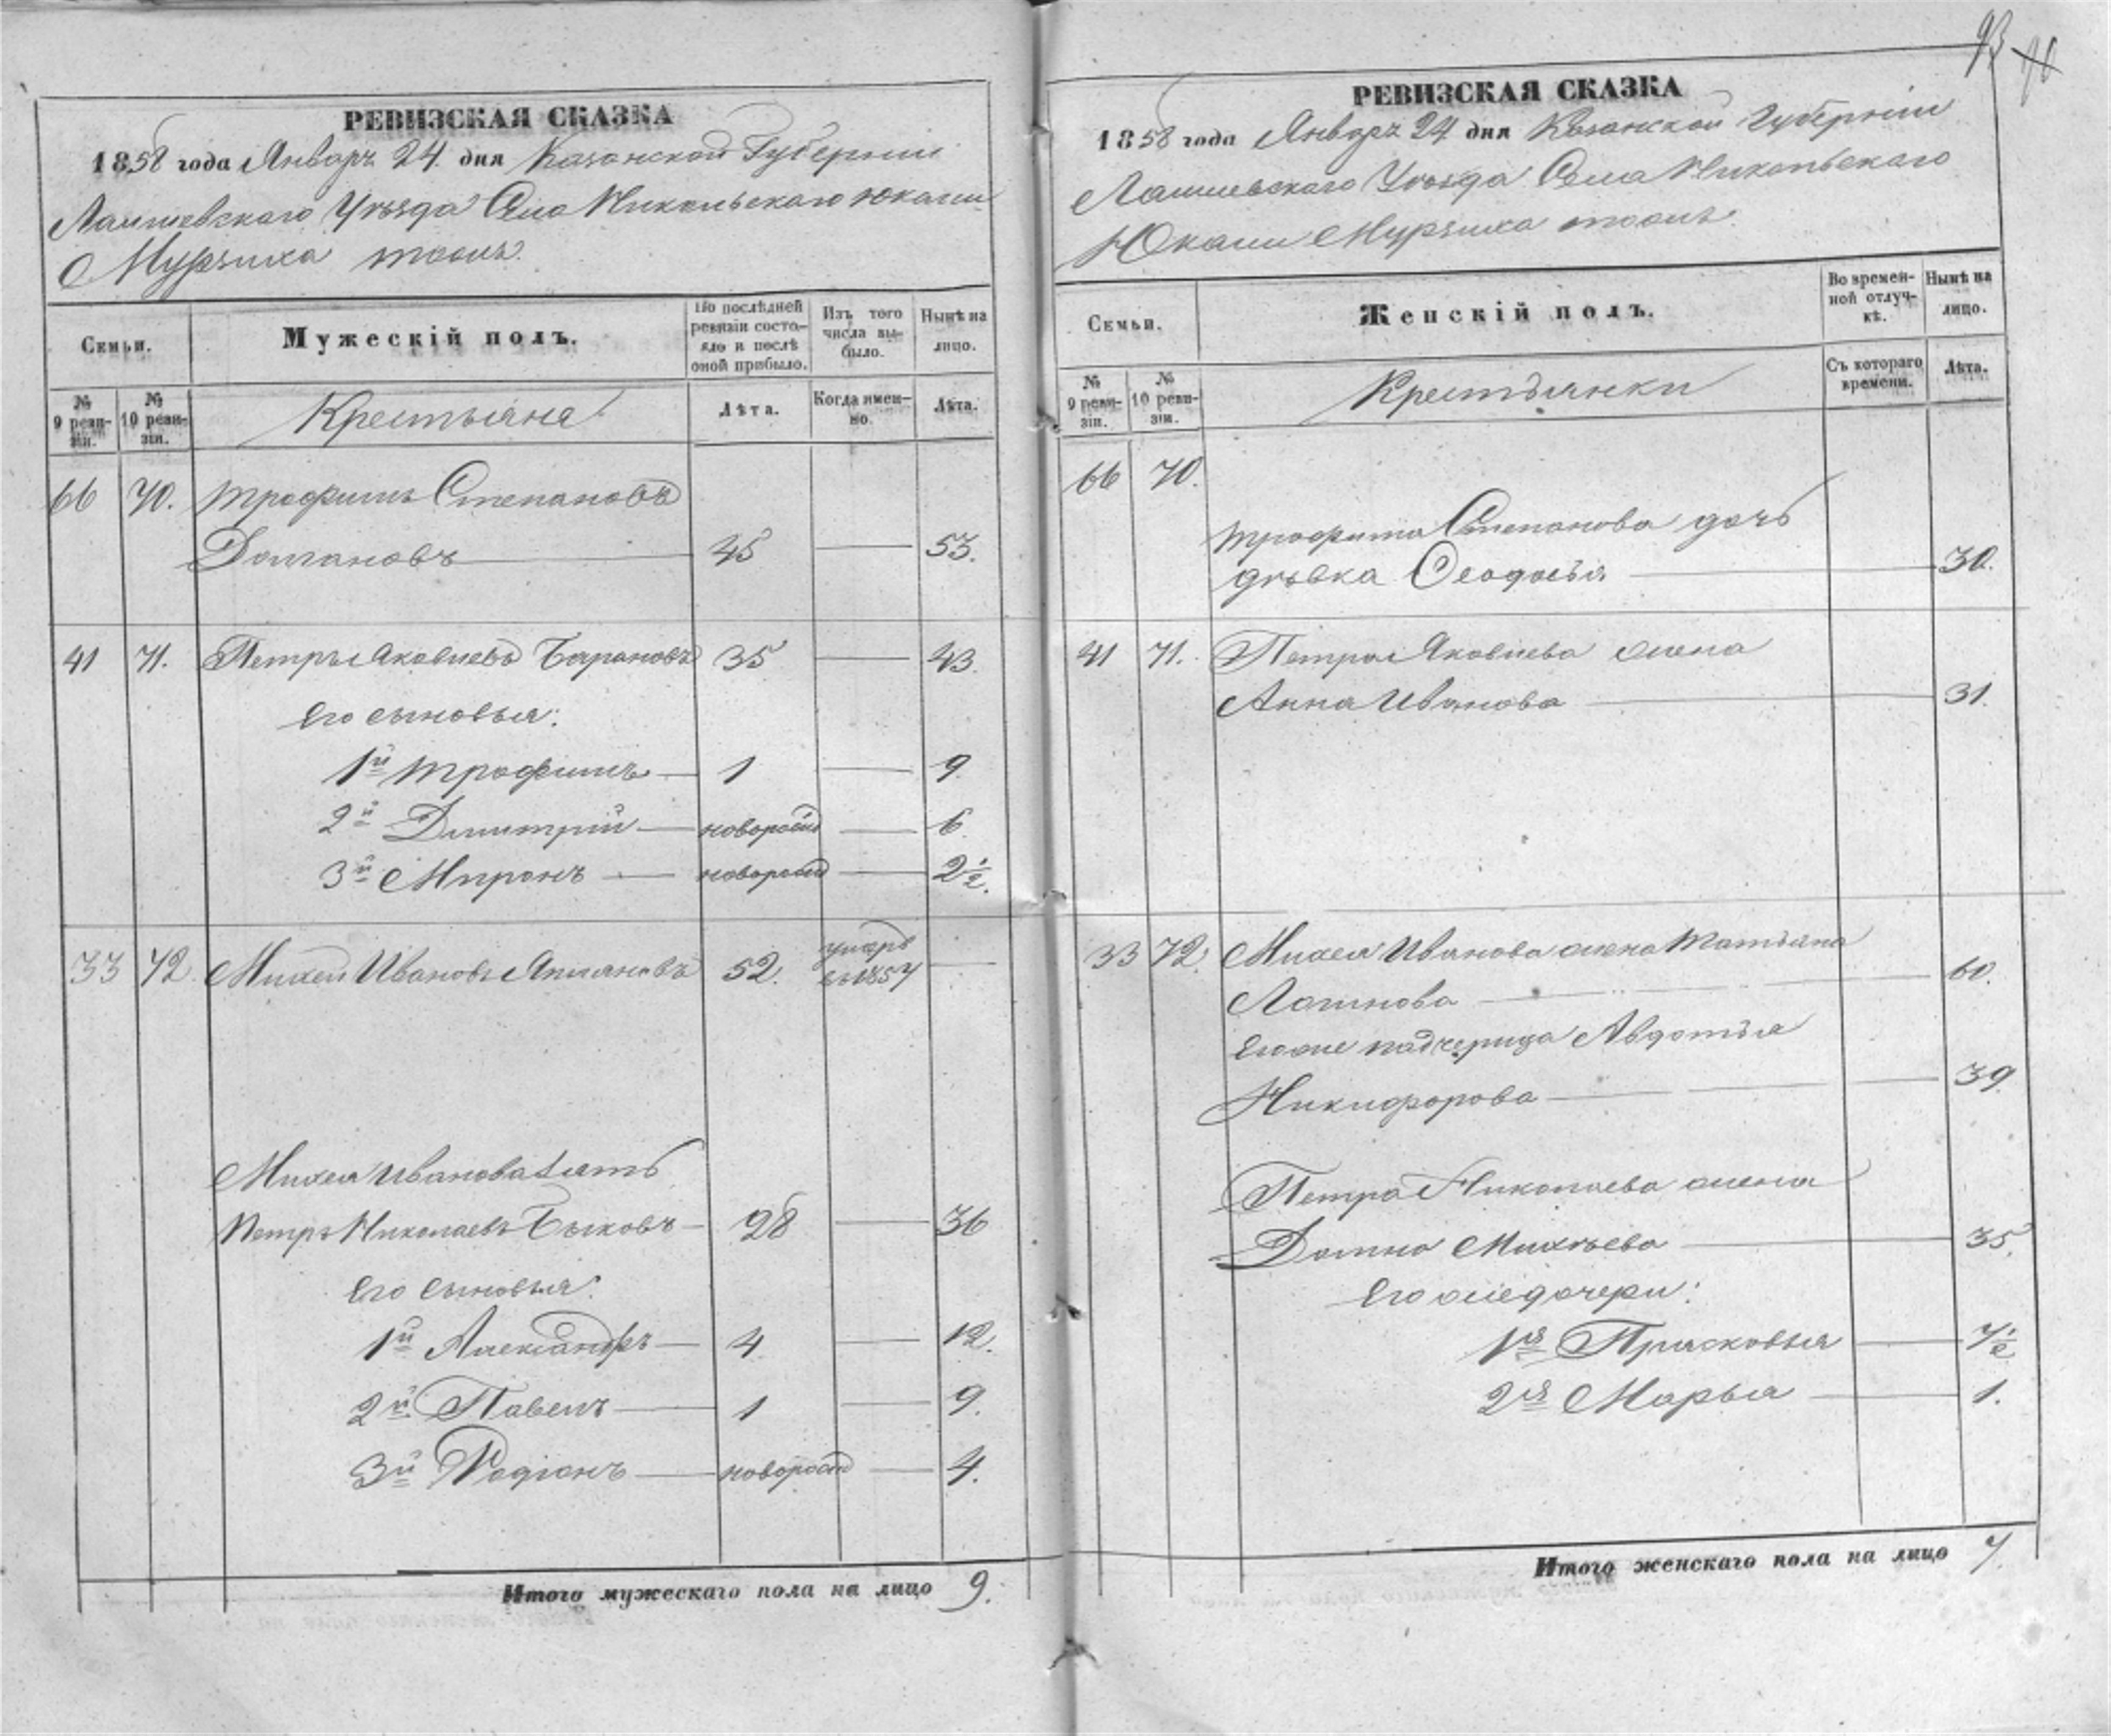 93 76
РЕВИЗСКАЯ СКАЗКА
1858 года Январъ 24 дня Казанской Губерніи
Лаишевскаго Уѣзда Села Никольскаго Юкачи
Мурзиха тожъ.
Семьи.
Мужескій полъ.
По послѣдней ревизіи состояло и послѣ оной прибыло.
Изъ того числа выбыло.
Нынѣ на лицо.
№ 9 ревизіи.
№ 10 ревизіи.
Крестьяна
Лѣта.
Когда именно.
Лѣта.
66 70. Трофимъ Степановъ
45 53.
41 71. Петръ Яковлевъ Барановъ 35 43.
Его сыновья:
1й Трофимъ 1 9
2й Дмитрій новорожд 6.
3й Миронъ новорожд 2½.
33 72 Михей Ивановъ 52. умеръ въ 1857
Михея Иванова зять
Петръ Николаевъ Быковъ 28 36
Его сыновья:
1й Александръ 4 12.
2й Павелъ 1 9.
3й Родіонъ новорожд 4.
Итого мужескаго пола на лицо 9.
РЕВИЗСКАЯ СКАЗКА
1858 года Январъ 24 дня Казанской Губерніи
Лаишевскаго Уѣзда Села Никольскаго
Юкачи Мурзиха тожъ.
Семьи.
Женскій полъ.
Во временной отлучкѣ.
Нынѣ на лицо.
№ 9 ревизіи.
№ 10 ревизіи.
Крестьянки
Съ котораго времени.
Лѣта.
66 70.
Трофима Степанова дочь
дѣвка Ѳеодосья 30.
41 71. Петра Яковлева жена
Анна Иванова 31.
33 72. Михея Иванова жена Татьяна
Логинова 60.
Его же падчерица Авдотья
Никифорова 39.
Петра Николаева жена
Домна Михѣева 35.
Его же дочери:
1я Прасковья 7½
2я Марья 1.
Итого женскаго пола на лицо 7.